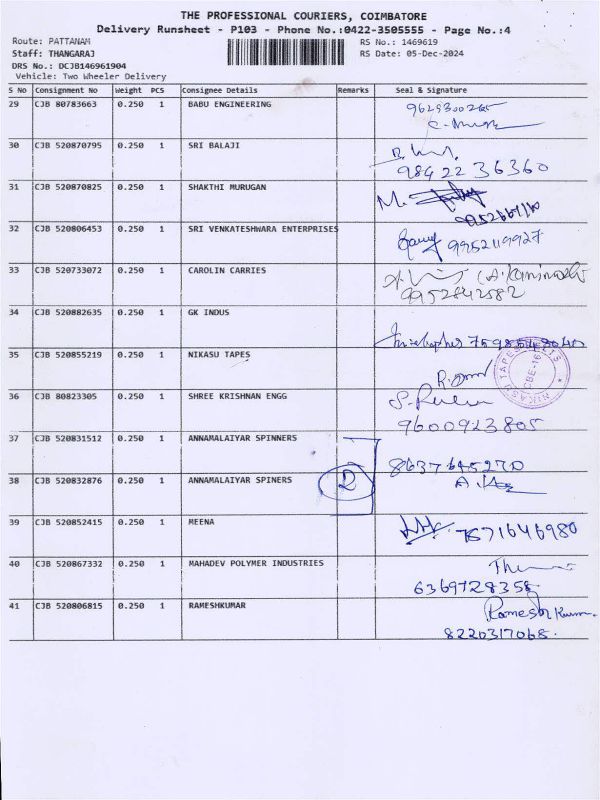 THE PROFESSIONAL COURIERS, COIMBATORE
Delivery Runsheet - P103 - Phone No.:0422-3505555 - Page No.:4
Route: PATTANAM RS No.: 1469619
Staff: THANGARAJ RS Date: 05-Dec-2024
DRS No.: DCJB146961904
Vehicle: Two Wheeler Delivery
S No Consignment No Weight PCS Consignee Details Remarks Seal & Signature
29 CJB 80783663 0.250 1 BABU ENGINEERING
30 CJB 520870795 0.250 1 SRI BALAJI
98422 36360
31 CJB 520870825 0.250 1 SHAKTHI MURUGAN
32 CJB 520806453 0.250 1 SRI VENKATESHWARA ENTERPRISES
9952119927
33 CJB 520733072 0.250 1 CAROLIN CARRIES
9952842582
34 CJB 520882635 0.250 1 GK INDUS
35 CJB 520855219 0.250 1 NIKASU TAPES
36 CJB 80823305 0.250 1 SHREE KRISHNAN ENGG
9600923805
37 CJB 520831512 0.250 1 ANNAMALAIYAR SPINNERS
8637645270
38 CJB 520832876 0.250 1 ANNAMALAIYAR SPINERS 2
39 CJB 520852415 0.250 1 MEENA
7571646980
40 CJB 520867332 0.250 1 MAHADEV POLYMER INDUSTRIES
6369728358
41 CJB 520806815 0.250 1 RAMESHKUMAR
Ramesh Kumar
8220317068